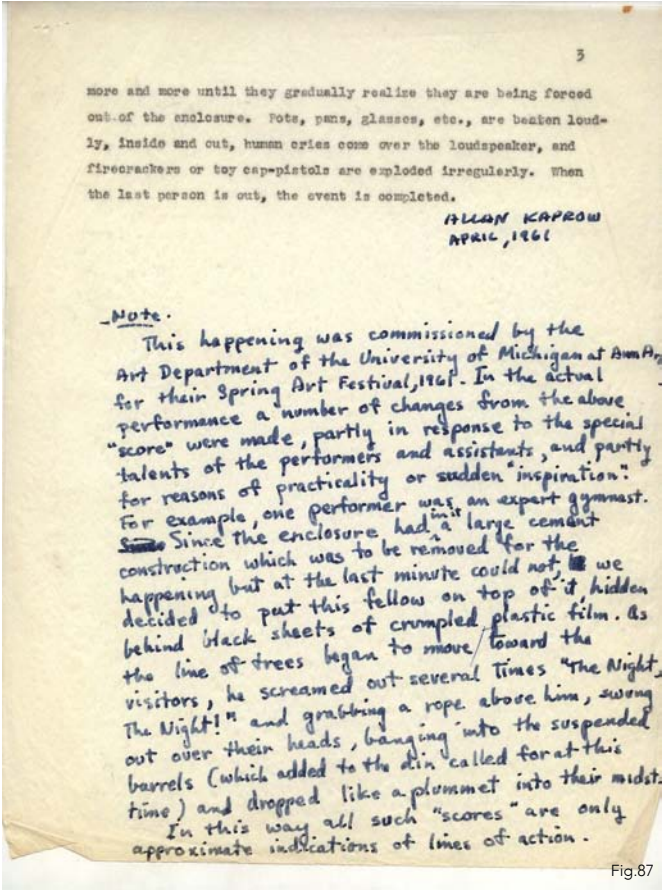 3
more and more until they gradually realize they are being forced
out of the enclosure. Pots, pans, glasses, etc., are beaten loud-
ly, inside and out, human cries come over the loudspeaker, and
firecrackers or toy cap-pistols are exploded irregularly. When
the last person is out, the event is completed.
ALLAN KAPROW
APRIL, 1961
Note.
This happening was commissioned by the
Art Department of the University of Michigan at Ann Ar
for their Spring Art Festival, 1961. In the actual
performance a number of changes from the above
"score" were made, partly in response to the special
talents of the performers and assistants, and partly
for reasons of practicality or sudden "inspiration".
For example, one performer was an expert gymnast.
Since the enclosure had in it a large cement
construction which was to be removed for the
happening but at the last minute could not, we
decided to put this fellow on top of it, hidden
behind black sheets of crumpled plastic film. As
the line of trees began to move toward the
visitors, he screamed out several times "The Night,
The Night!" and grabbing a rope above him, swung
out over their heads, banging into the suspended
barrels (which added to the din called for at this
time) and dropped like a plummet into their midst.
In this way all such "scores" are only
approximate indications of lines of action.
Fig.87